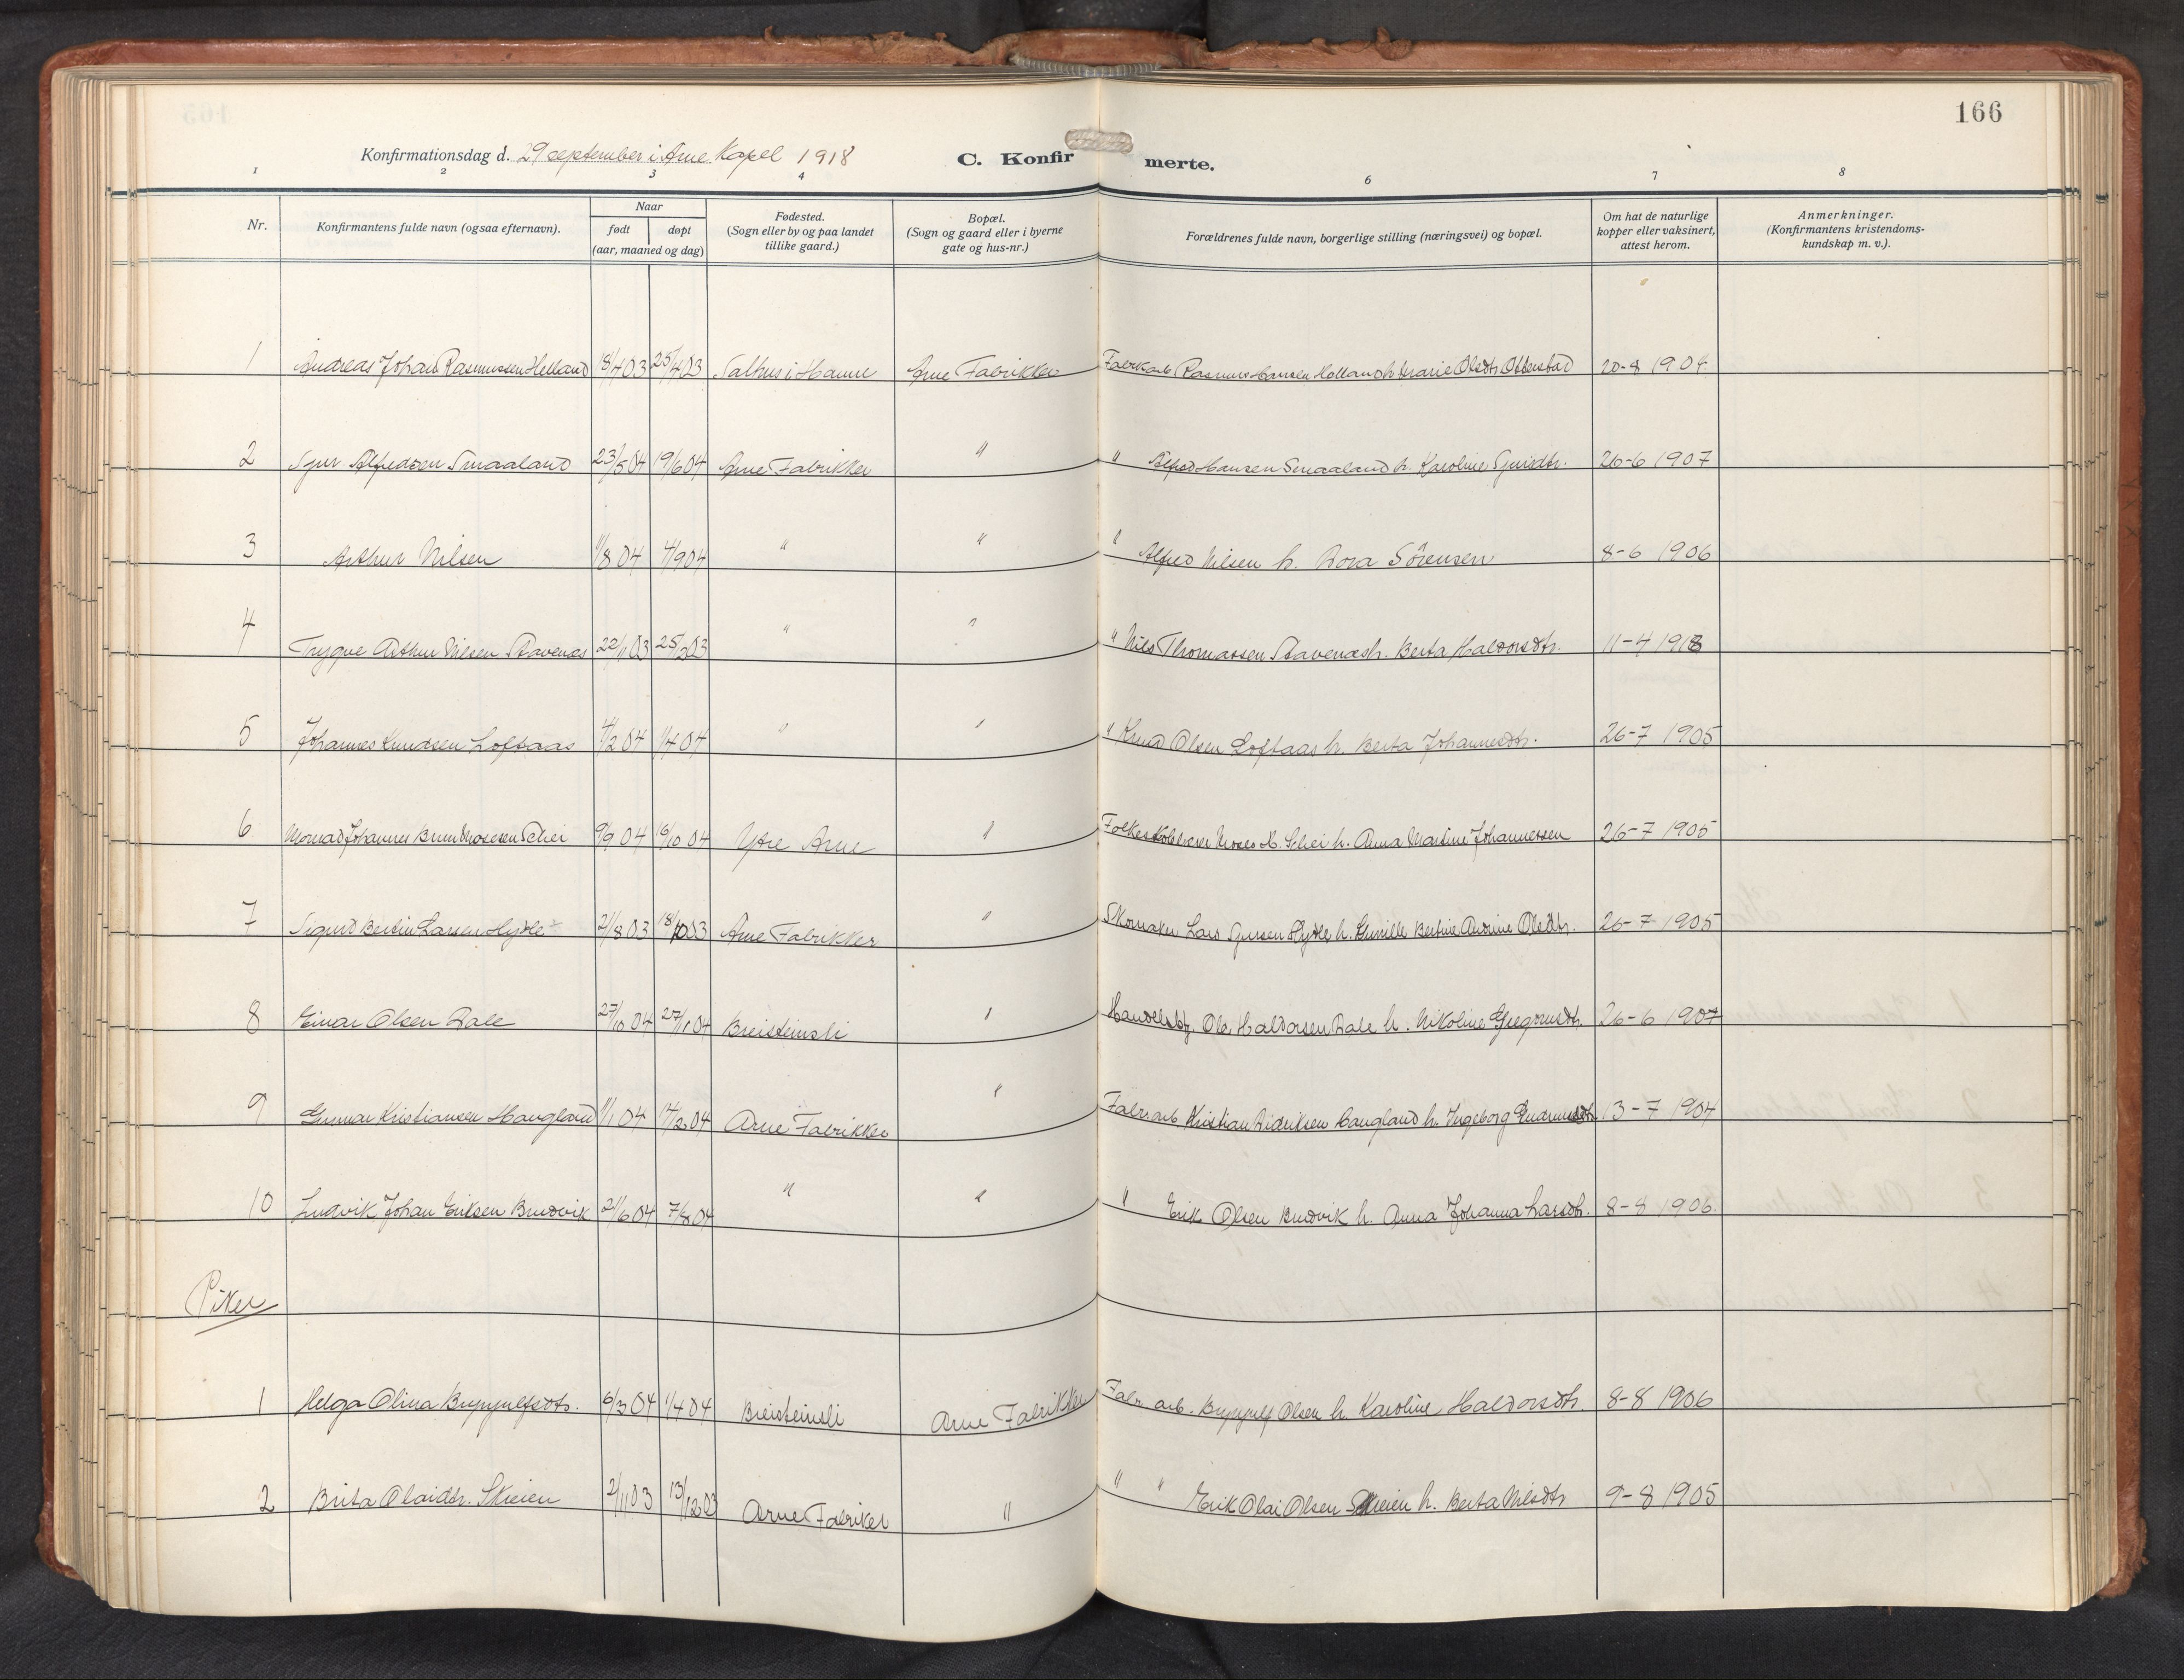 166
Konfirmationsdag d. 29 september i Arne Kapel 1918
C. Konfirmerte.
1 2 3 4 6 7 8
Nr.
Konfirmantens fulde navn (ogsaa efternavn).
Naar
født
døpt
(aar, maaned og dag)
Fødested.
(Sogn eller by og paa landet
tillike gaard.)
Bopæl.
(Sogn og gaard eller i byerne
gate og hus-nr.)
Forældrenes fulde navn, borgerlige stilling (næringsvei) og bopæl.
Om hat de naturlige
kopper eller vaksinert,
attest herom.
Anmerkninger.
(Konfirmantens kristendoms-
kundskap m. v.).
1 Andreas Johan Rasmussen Helland 18/4 03 25/4 03 Salhus i Hamre Arne Fabrikker Rasmus Hansen Helland h. Marie Olsdtr. 20-8 1904
2 Alfredsen Smaaland 23/5 04 19/6 04 Arne Fabrikker " " Alfred Hansen Smaaland h. Karoline 26-6 1907
3 Arthur Nilsen 11/8 04 4/9 04 " " " Alfred Nilsen h. Dora Sörensen 8-6 1906
4 Trygve Arthur Nilsen Stavenes 22/1 03 25/2 03 " " " Nils Thomassen Stavenes h. Berta Haldorsdtr. 11-4 1918
5 Johannes Knudsen Loftaas 4/2 04 1/4 04 " " " Knud Olsen Loftaas h. Berta Johannesdtr. 26-7 1905
6 Johannes Schei 9/9 04 16/10 04 Ytre Arne " Moses M. Schei h. Anna Martine Johannessen 26-7 1905
7 Sigurd Bertin Larsen Hysle 2/8 03 18/10 03 Arne Fabrikker " Skomaker Lars Hysle h. Bertine Andrine Olsdtr. 26-7 1905
8 Einar Olsen Dale 27/10 04 04 Breisteinsli " Ole Haldorsen Dale h. Nikoline 26-6 1907
9 Gunnar Kristiansen Haugland 11/1 04 14/2 04 Arne Fabrikker " Fabr. arb. Kristian Didriksen Haugland h. Ingeborg 13-7 1904
10 Ludvik Johan Eriksen Brudvik 2/6 04 7/8 04 " " " Erik Olsen Brudvik h. Anna Johanna Larsdtr. 8-8 1906.
Piker
1 Helga Olina Brynjulfsdtr. 6/3 04 1/4 04 Breisteinsli Arne Fabrikker Fabr. arb. Brynjulf Olsen h. Karoline Haldorsdtr. 8-8 1906
2 Brita Olaidtr. Skeien 2/11 03 13/12 03 Arne Fabriker " " " Erik Olai Olsen Skeien h. Berta Nilsdtr 9-8 1905